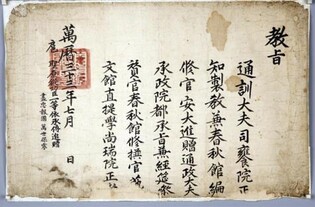 教旨
通訓大夫司饔院正
知製敎兼春秋館編
修官安大進贈通政大夫
承政院都承旨兼經筵參
贊官春秋館修撰官藝
文館直提學尙瑞院正者
萬曆三十三年七月 日